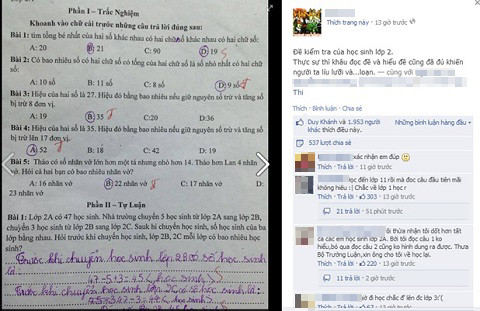 Phần I – Trắc Nghiệm
Khoanh vào chữ cái trước những câu trả lời đúng sau:
Bài 1: tìm tổng bé nhất của hai số khác nhau có hai chữ số khác nhau có hai chữ số:
A: 20 B: 21 C: 90 D: 19
Bài 2: Có bao nhiêu số có hai chữ số có tổng của hai chữ số là số nhỏ nhất có hai chữ
số:
A. 10 số B: 11 số C: 8 số D: 9 số
Bài 3: Hiệu của hai số là 27. Hiệu đó bằng bao nhiêu nếu giữ nguyên số trừ và tăng số
bị trừ 8 đơn vị.
A: 19 B: 35 C:20 D:36
Bài 4: Hiệu của hai số là 35. Hiệu đó bằng bao nhiêu nếu giữ nguyên số trừ và tăng số
bị trừ lên 17 đơn vị.
A: 52 B: 18 C: 42 D: 19
Bài 5: Thảo có số nhãn vở lớn hơn một tá nhưng nhỏ hơn 14. Thảo hơn Lan 4 nhãn
vở. Hỏi cả hai bạn có bao nhiêu nhãn vở?
A: 16 nhãn vở B: 22 nhãn vở C: 17 nhãn vở D:
23 nhãn vở
Phần II – Tự Luận
Bài 1: Lớp 2A có 47 học sinh. Nhà trường chuyển 5 học sinh từ lớp 2A sang lớp 2B,
chuyển 3 học sinh từ lớp 2B sang lớp 2C. Sau khi chuyển xong, số học sinh của ba
lớp bằng nhau. Hỏi trước khi chuyển học sinh, lớp 2B, 2C mỗi lớp có bao nhiêu học
sinh?
Trước khi chuyển học sinh lớp 2B có số học sinh
là:
Trước khi chuyển học sinh lớp 2C có số học sinh là:
Thích trang này · 13 giờ trước
Đề kiểm tra của học sinh lớp 2.
Thực sự thì khâu đọc đề và hiểu đề cũng đã đủ khiến
người ta líu lưỡi và...loạn. — cùng với
Thi
Thích · Bình luận · Chia sẻ
Duy Khánh và 1.953 người
khác thích điều này.
Những bình luận hàng đầu
537 lượt chia sẻ
xác nhận em đúp
Thích · Trả lời · 11 giờ trước
đọc đến lớp 11 rồi mà đọc câu đầu tiên mãi
không hiểu :( Chắc về lớp 1 học r
Thích · Trả lời · 303 · 13 giờ trước
21 trả lời · 51 phút trước
ôi thừa nhận tôi dốt hơn tất
cả các em học sinh lớp 2A. Bởi tôi đọc câu 1 ko
hiểu,bỏ qua đọc câu 2 cũng ko hình dung ra được. Thưa
Bộ Trưởng Luận,xin ông cho tôi về học lại.
Thích · Trả lời · 220 · 13 giờ trước
11 trả lời · 2 giờ trước
ờ đi học chắc đ' lên đc lớp 3:'(